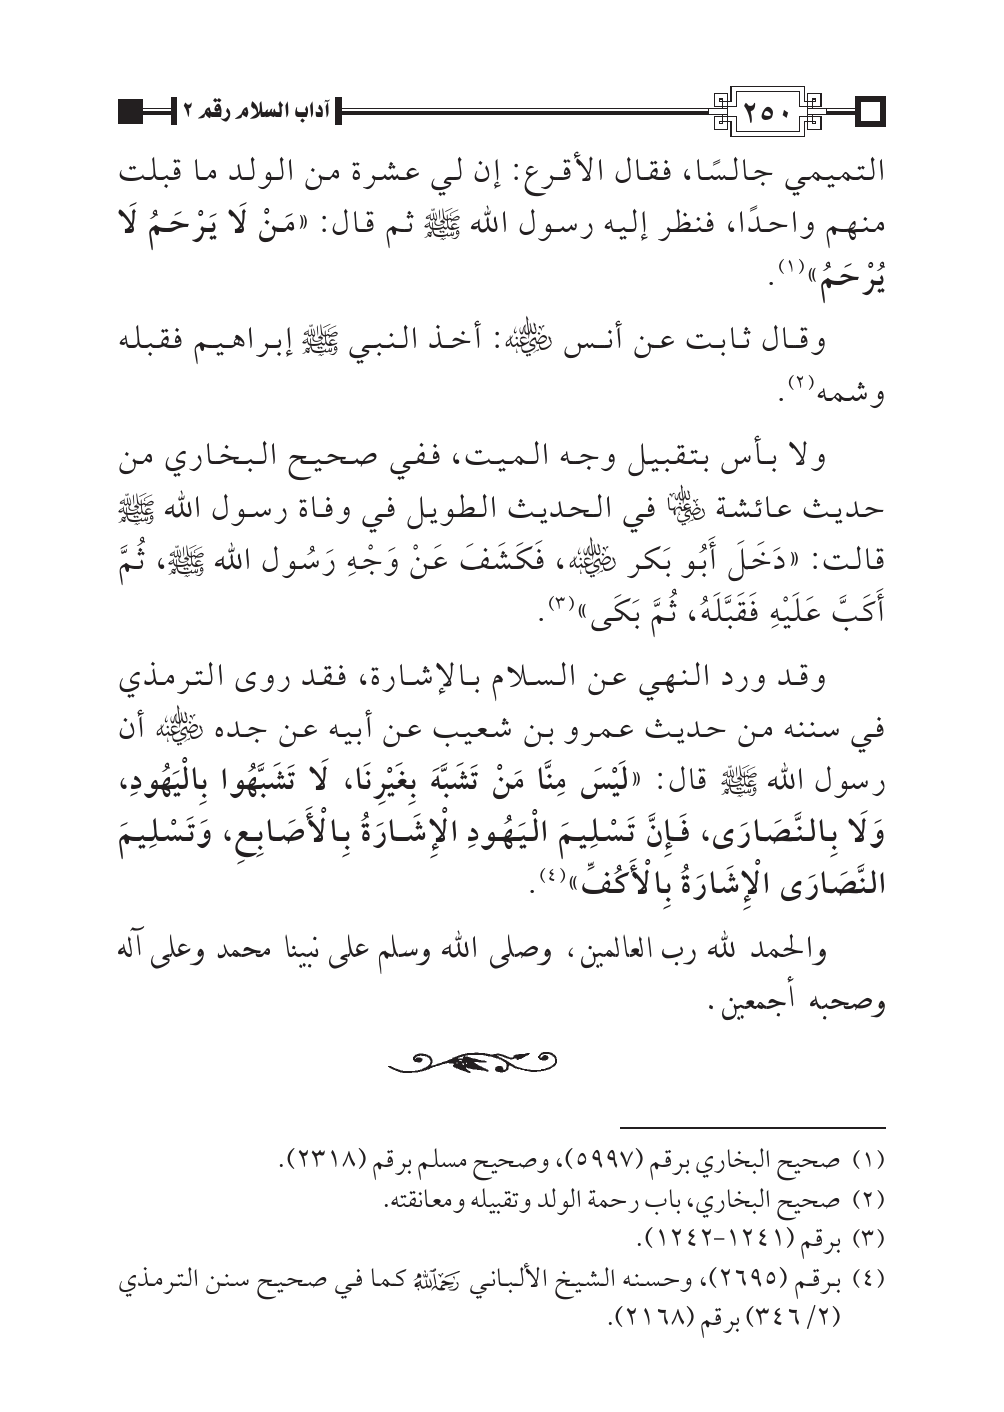 ٢٥٠ آداب السلام رقم ٢
التميمي جالسًا، فقال الأقرع: إن لي عشرة من الولد ما قبلت
منهم واحدًا، فنظر إليه رسول الله ﷺ ثم قال: «مَنْ لَا يَرْحَمُ لَا
يُرْحَمُ»(١).
وقال ثابت عن أنس رضي الله عنه: أخذ النبي ﷺ إبراهيم فقبله
وشمه(٢).
ولا بأس بتقبيل وجه الميت، ففي صحيح البخاري من
حديث عائشة رضي الله عنها في الحديث الطويل في وفاة رسول الله ﷺ
قالت: «دَخَلَ أَبُو بَكر رضي الله عنه، فَكَشَفَ عَنْ وَجْهِ رَسُول الله ﷺ، ثُمَّ
أَكَبَّ عَلَيْهِ فَقَبَّلَهُ، ثُمَّ بَكَى»(٣).
وقد ورد النهي عن السلام بالإشارة، فقد روى الترمذي
في سننه من حديث عمرو بن شعيب عن أبيه عن جده رضي الله عنه أن
رسول الله ﷺ قال: «لَيْسَ مِنَّا مَنْ تَشَبَّهَ بِغَيْرِنَا، لَا تَشَبَّهُوا بِالْيَهُودِ،
وَلَا بِالنَّصَارَى، فَإِنَّ تَسْلِيمَ الْيَهُودِ الْإِشَارَةُ بِالْأَصَابِعِ، وَتَسْلِيمَ
النَّصَارَى الْإِشَارَةُ بِالْأَكُفِّ»(٤).
والحمد لله رب العالمين، وصلى الله وسلم على نبينا محمد وعلى آله
وصحبه أجمعين.
(١) صحيح البخاري برقم (٥٩٩٧)، وصحيح مسلم برقم (٢٣١٨).
(٢) صحيح البخاري، باب رحمة الولد وتقبيله ومعانقته.
(٣) برقم (١٢٤١-١٢٤٢).
(٤) برقم (٢٦٩٥)، وحسنه الشيخ الألباني رحمه الله كما في صحيح سنن الترمذي
(٢/ ٣٤٦) برقم (٢١٦٨).